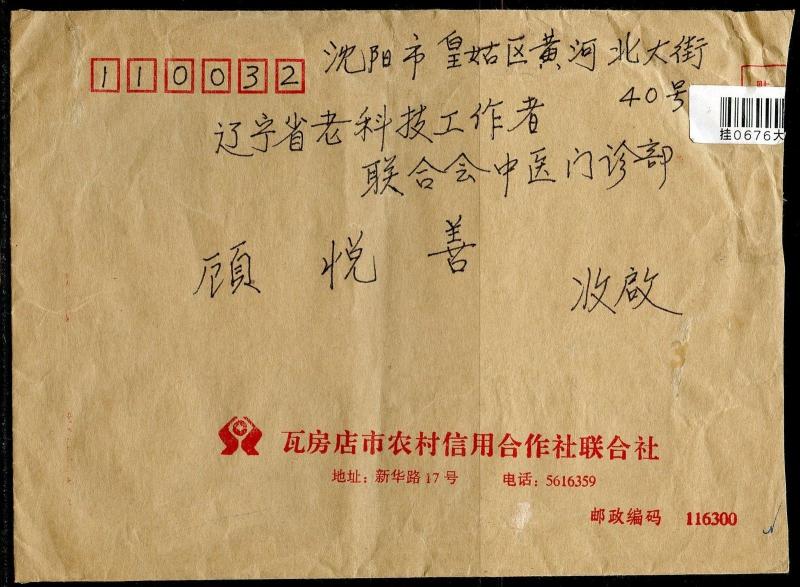 110032
沈阳市皇姑区黄河北大街
40号
辽宁省老科技工作者
联合会中医门诊部
顾悦善 收啟
挂0676大
瓦房店市农村信用合作社联合社
地址：新华路17号 电话：5616359
邮政编码 116300